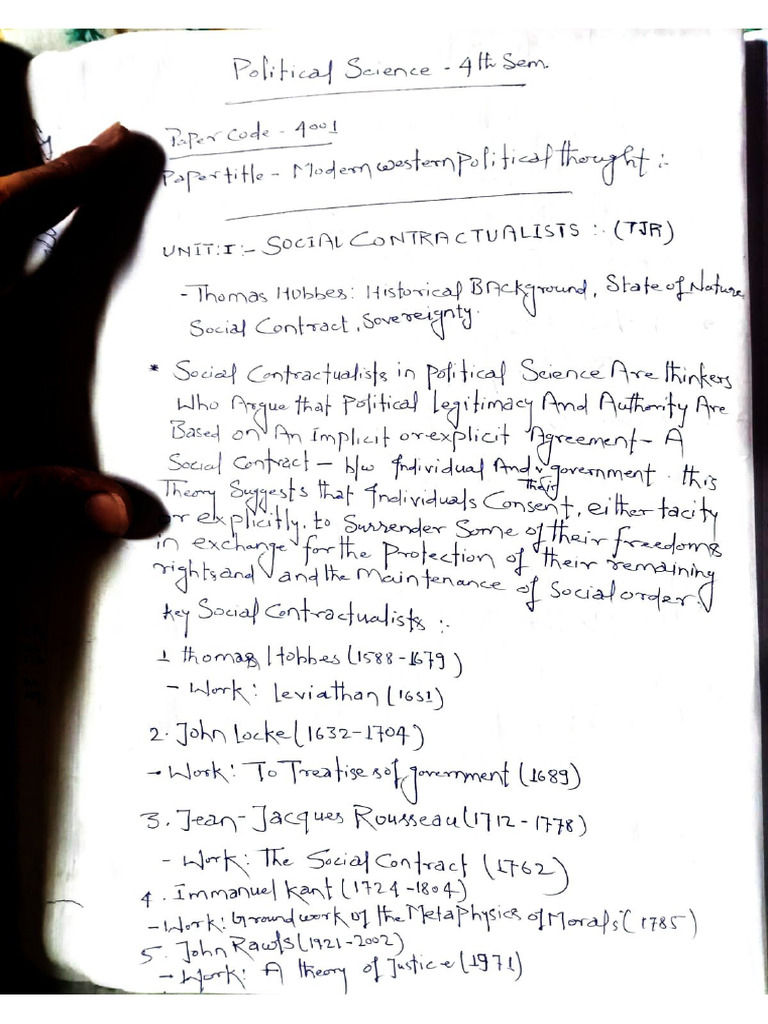 Political Science - 4th Sem.
Paper Code - 4001
Paper title - Modern western political thought :-
UNIT: I :- SOCIAL CONTRACTUALISTS :- (TJR)
- Thomas Hobbes: Historical Background, State of Nature
Social Contract, Sovereignty.
* Social Contractualists in political Science Are thinkers
Who Argue that Political legitimacy And Authority Are
Based on An Implicit or explicit Agreement - A
Social Contract - b/w Individual And their government. this
Theory Suggests that Individuals Consent, either tacity
or explicitly, to Surrender Some of their freedoms
in exchange for the Protection of their remaining
rights and and the Maintenance of Social order.
key Social Contractualists :-
1 Thomas Hobbes (1588-1679)
- Work: Leviathan (1651)
2. John Locke (1632-1704)
- Work: To Treatise s of government (1689)
3. Jean-Jacques Rousseau (1712-1778)
- Work: The Social Contract (1762)
4. Immanuel Kant (1724-1804)
- Work: Groundwork of the Metaphysics of Morals" (1785)
5. John Rawls (1921-2002)
- Work: A theory of Justice (1971)